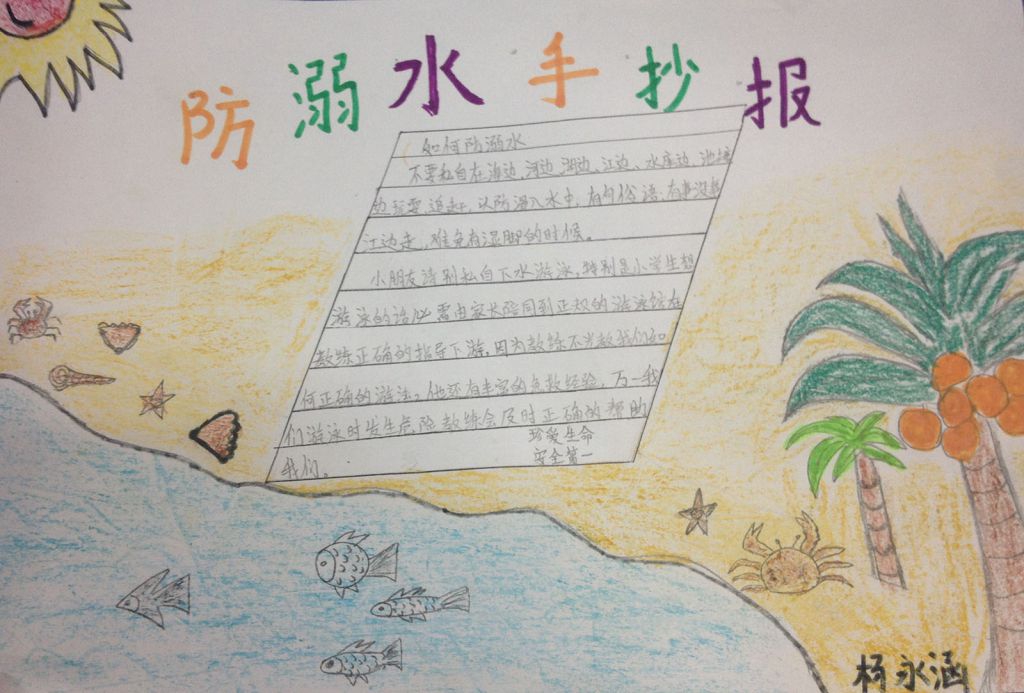 防溺水手抄报
如何防溺水
不要私自在海边、河边、湖边、江边、水库边、池塘
边玩耍、追赶,以防滑入水中,有句俗语:有事没事
江边走,难免有湿脚的时候。
小朋友请别私自下水游泳,特别是小学生想
游泳的话必需由家长陪同到正规的游泳馆在
教练正确的指导下游,因为教练不光教我们如
何正确的游法。他还有丰富的急救经验,万一我
们游泳时发生危险教练会及时正确的帮助
我们。
珍爱生命
安全第一
杨永涵